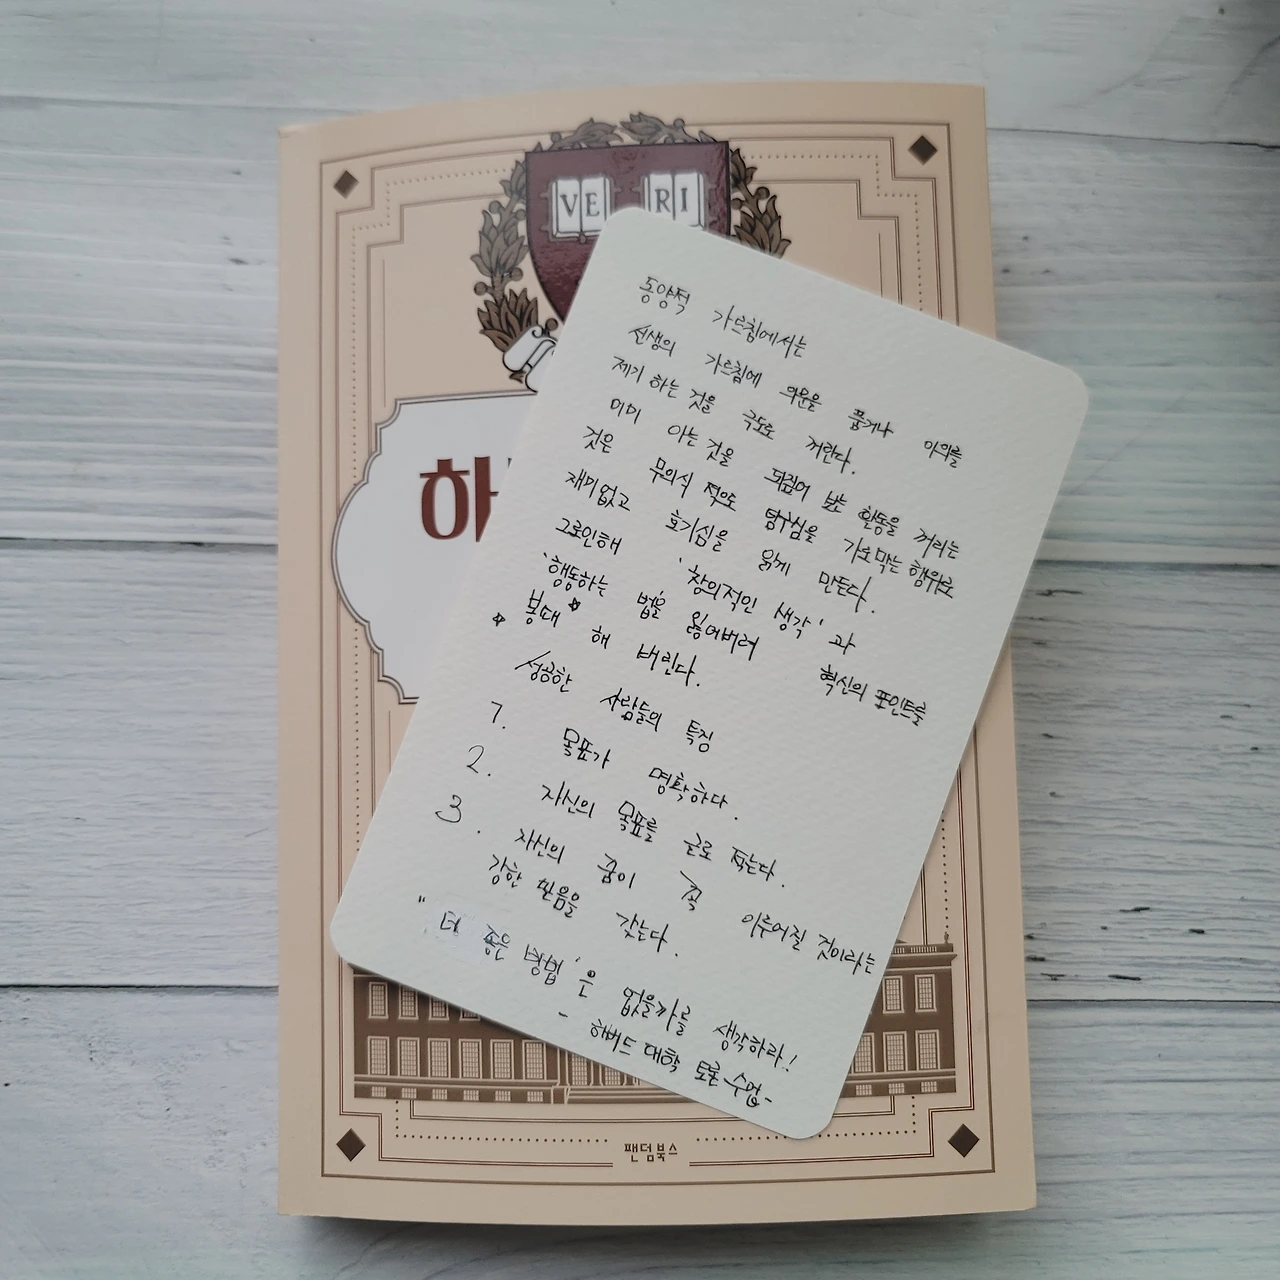 VE RI
하
동양적 가르침에서는
선생의 가르침에 의문을 품거나 이의를
제기 하는 것을 극도로 꺼린다.
이미 아는 것을 되짚어 보는 활동을 꺼리는
것은 무의식 적으로 탐구심을 가로막는 행위로
재미없고 호기심을 잃게 만든다.
그로인해 '창의적인 생각' 과
'행동하는 법을 잃어버려 혁신의 포인트를
☆ 봉때 ☆ 해 버린다.
성공한 사람들의 특징
1. 목표가 명확하다.
2. 자신의 목표를 글로 적는다.
3. 자신의 꿈이 꼭 이루어질 것이라는
강한 믿음을 갖는다.
" 더 좋은 방법 '은 없을까를 생각하라!
- 하버드 대학 토론 수업 -
팬덤북스